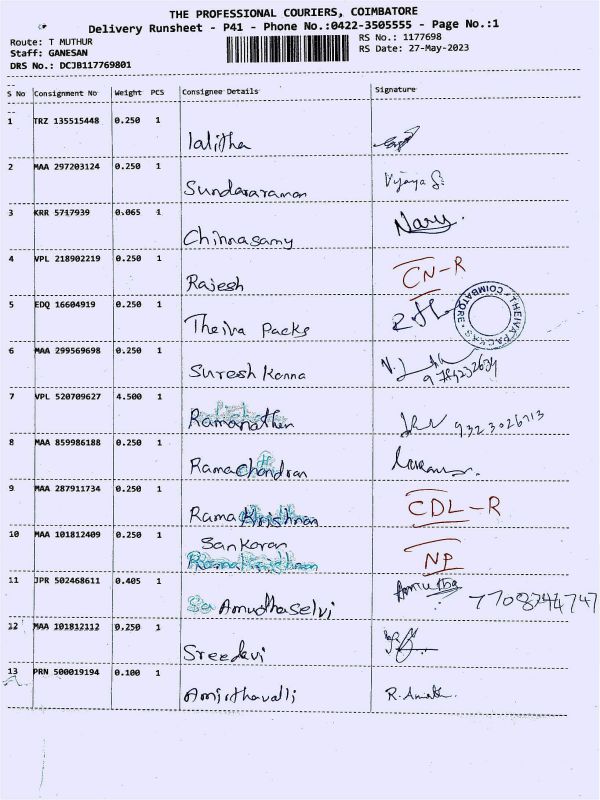 THE PROFESSIONAL COURIERS, COIMBATORE
Delivery Runsheet - P41 - Phone No.:0422-3505555 - Page No.:1
Route: T MUTHUR
RS No.: 1177698
Staff: GANESAN
RS Date: 27-May-2023
DRS No.: DCJB117769801
S No Consignment No Weight PCS Consignee Details Signature
1 TRZ 135515448 0.250 1
lalitha
2 MAA 297203124 0.250 1
Sundararaman Vijaya S.
3 KRR 5717939 0.065 1
Chinnasamy
4 VPL 218902219 0.250 1
Rajesh CN-R
5 EDQ 16604919 0.250 1
Theiva Packs
THEIVA PACKS COIMBATORE
6 MAA 299569698 0.250 1
Suresh Kanna
7 VPL 520709627 4.500 1
Ramanathan 9323026713
8 MAA 859986188 0.250 1
Ramachandran
9 MAA 287911734 0.250 1
Rama Krishnan CDL-R
10 MAA 101812409 0.250 1
Sankaran NP
11 JPR 502468611 0.405 1
Amudhaselvi 7708744747
12 MAA 101812112 0.250 1
Sreedevi
13 PRN 500019194 0.100 1
Amirthavalli